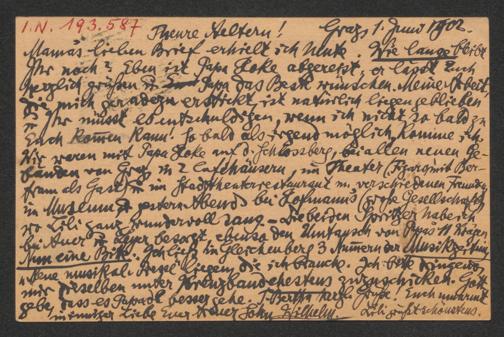 I.N. 193.587
Theure Aeltern! Graz 1. Juni 1902.
Mamas lieben Brief erhielt ich heute. Wie lange bleibt
Ihr noch? Eben ist Papa Hoke abgereist, er lässt Euch
herzlich grüßen u. Papa das Beste wünschen. Meine Arbeit,
die mich geradezu erstickt, ist natürlich liegen geblieben
u. Ihr müsst entschuldigen, wenn ich nicht so bald zu
Euch komen kann. Sobald als irgend möglich komme ich.
Wir waren mit Papa Hoke auf d. Schlossberg, bei allen neuen Ge-
bäuden von Graz, in 2 Caféhäusern, im Theater (Figaro mit Ber-
tram als Gast), im Stadttheaterrestaurant m. verschiedenen Freunden,
im Museum u. gestern Abend bei Hofmanns große Gesellschaft
wo Lili ganz wundervoll sang – Die beiden Spritzer habe ich
bei Auer u. besorgt, ebenso den Umtausch von Papas 11 Krägen
Nun eine Bitte. Ich ließ in Gleichenberg 3 Numern der Musikzeitung
"Neue musikal. Presse" liegen, die ich brauche. Ich bitte dringend
mir dieselben unter Kreuzband ehestens zuzuschicken. Gott
gebe, dass es Papa besser gehe. T. Bertha herzl. Grüße. Euch umarmt
in inniger Liebe Euer treuer Sohn Wilhelm. Lili grüßt schönstens.